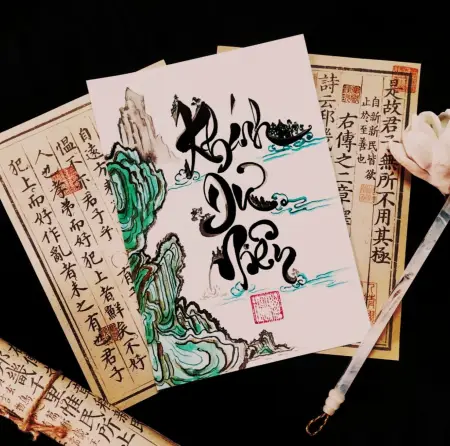 Khánh
Dư
Niên
自遠
慍不亦君子乎有
人也孝弟而好犯上者鮮矣不好
犯上而好作亂者未之有也君子
是故君子無所不用其極
自新新民皆欲
止於至善也
右傳之二章
詩云邦
畿千
里惟民